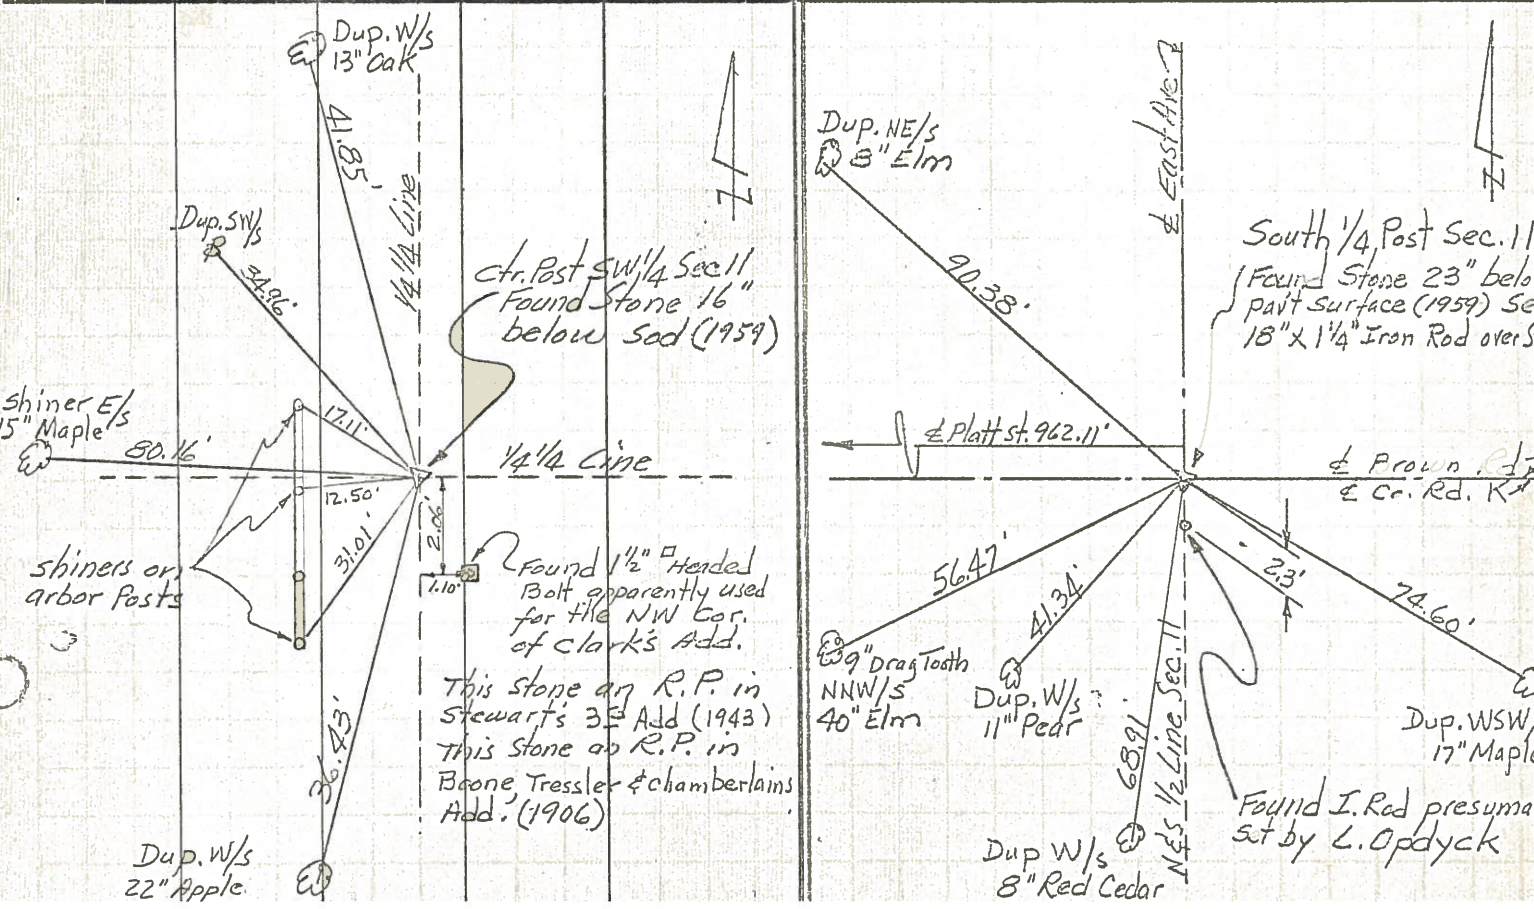 Dup. W/s
13" Oak
41.85'
Dup. SW/s
34.96'
1/4 1/4 Line
Ctr. Post SW 1/4 Sec 11
Found Stone 16"
below Sod (1959)
shiner E/s
15" Maple
80.16'
17.11'
12.50'
31.01'
1/4 1/4 Line
2.06'
1.10'
shiners on
arbor Posts
Found 1 1/2" □ Headed
Bolt apparently used
for the NW Cor.
of Clark's Add.
This Stone an R.P. in
Stewart's 3rd Add (1943)
This Stone an R.P. in
Boone, Tressler & Chamberlains
Add. (1906)
36.43'
Dup. W/s
22" Apple
N
Dup. NE/s
8" Elm
90.38'
℄ East Ave
N
South 1/4 Post Sec. 11
Found Stone 23" belo
pav't Surface (1959) Se
18" X 1 1/4" Iron Rod over S
℄ Platt St. 962.11'
℄ Brown Rd
℄ Cr. Rd. K
56.47'
41.34'
2.3'
74.60'
9" Drag Tooth
NNW/s
40" Elm
Dup. W/s
11" Pear
68.91'
N & S 1/2 Line Sec. 11
Dup. WSW/
17" Maple
Found I. Rod presuma
set by L. Opdyck
Dup W/s
8" Red Cedar